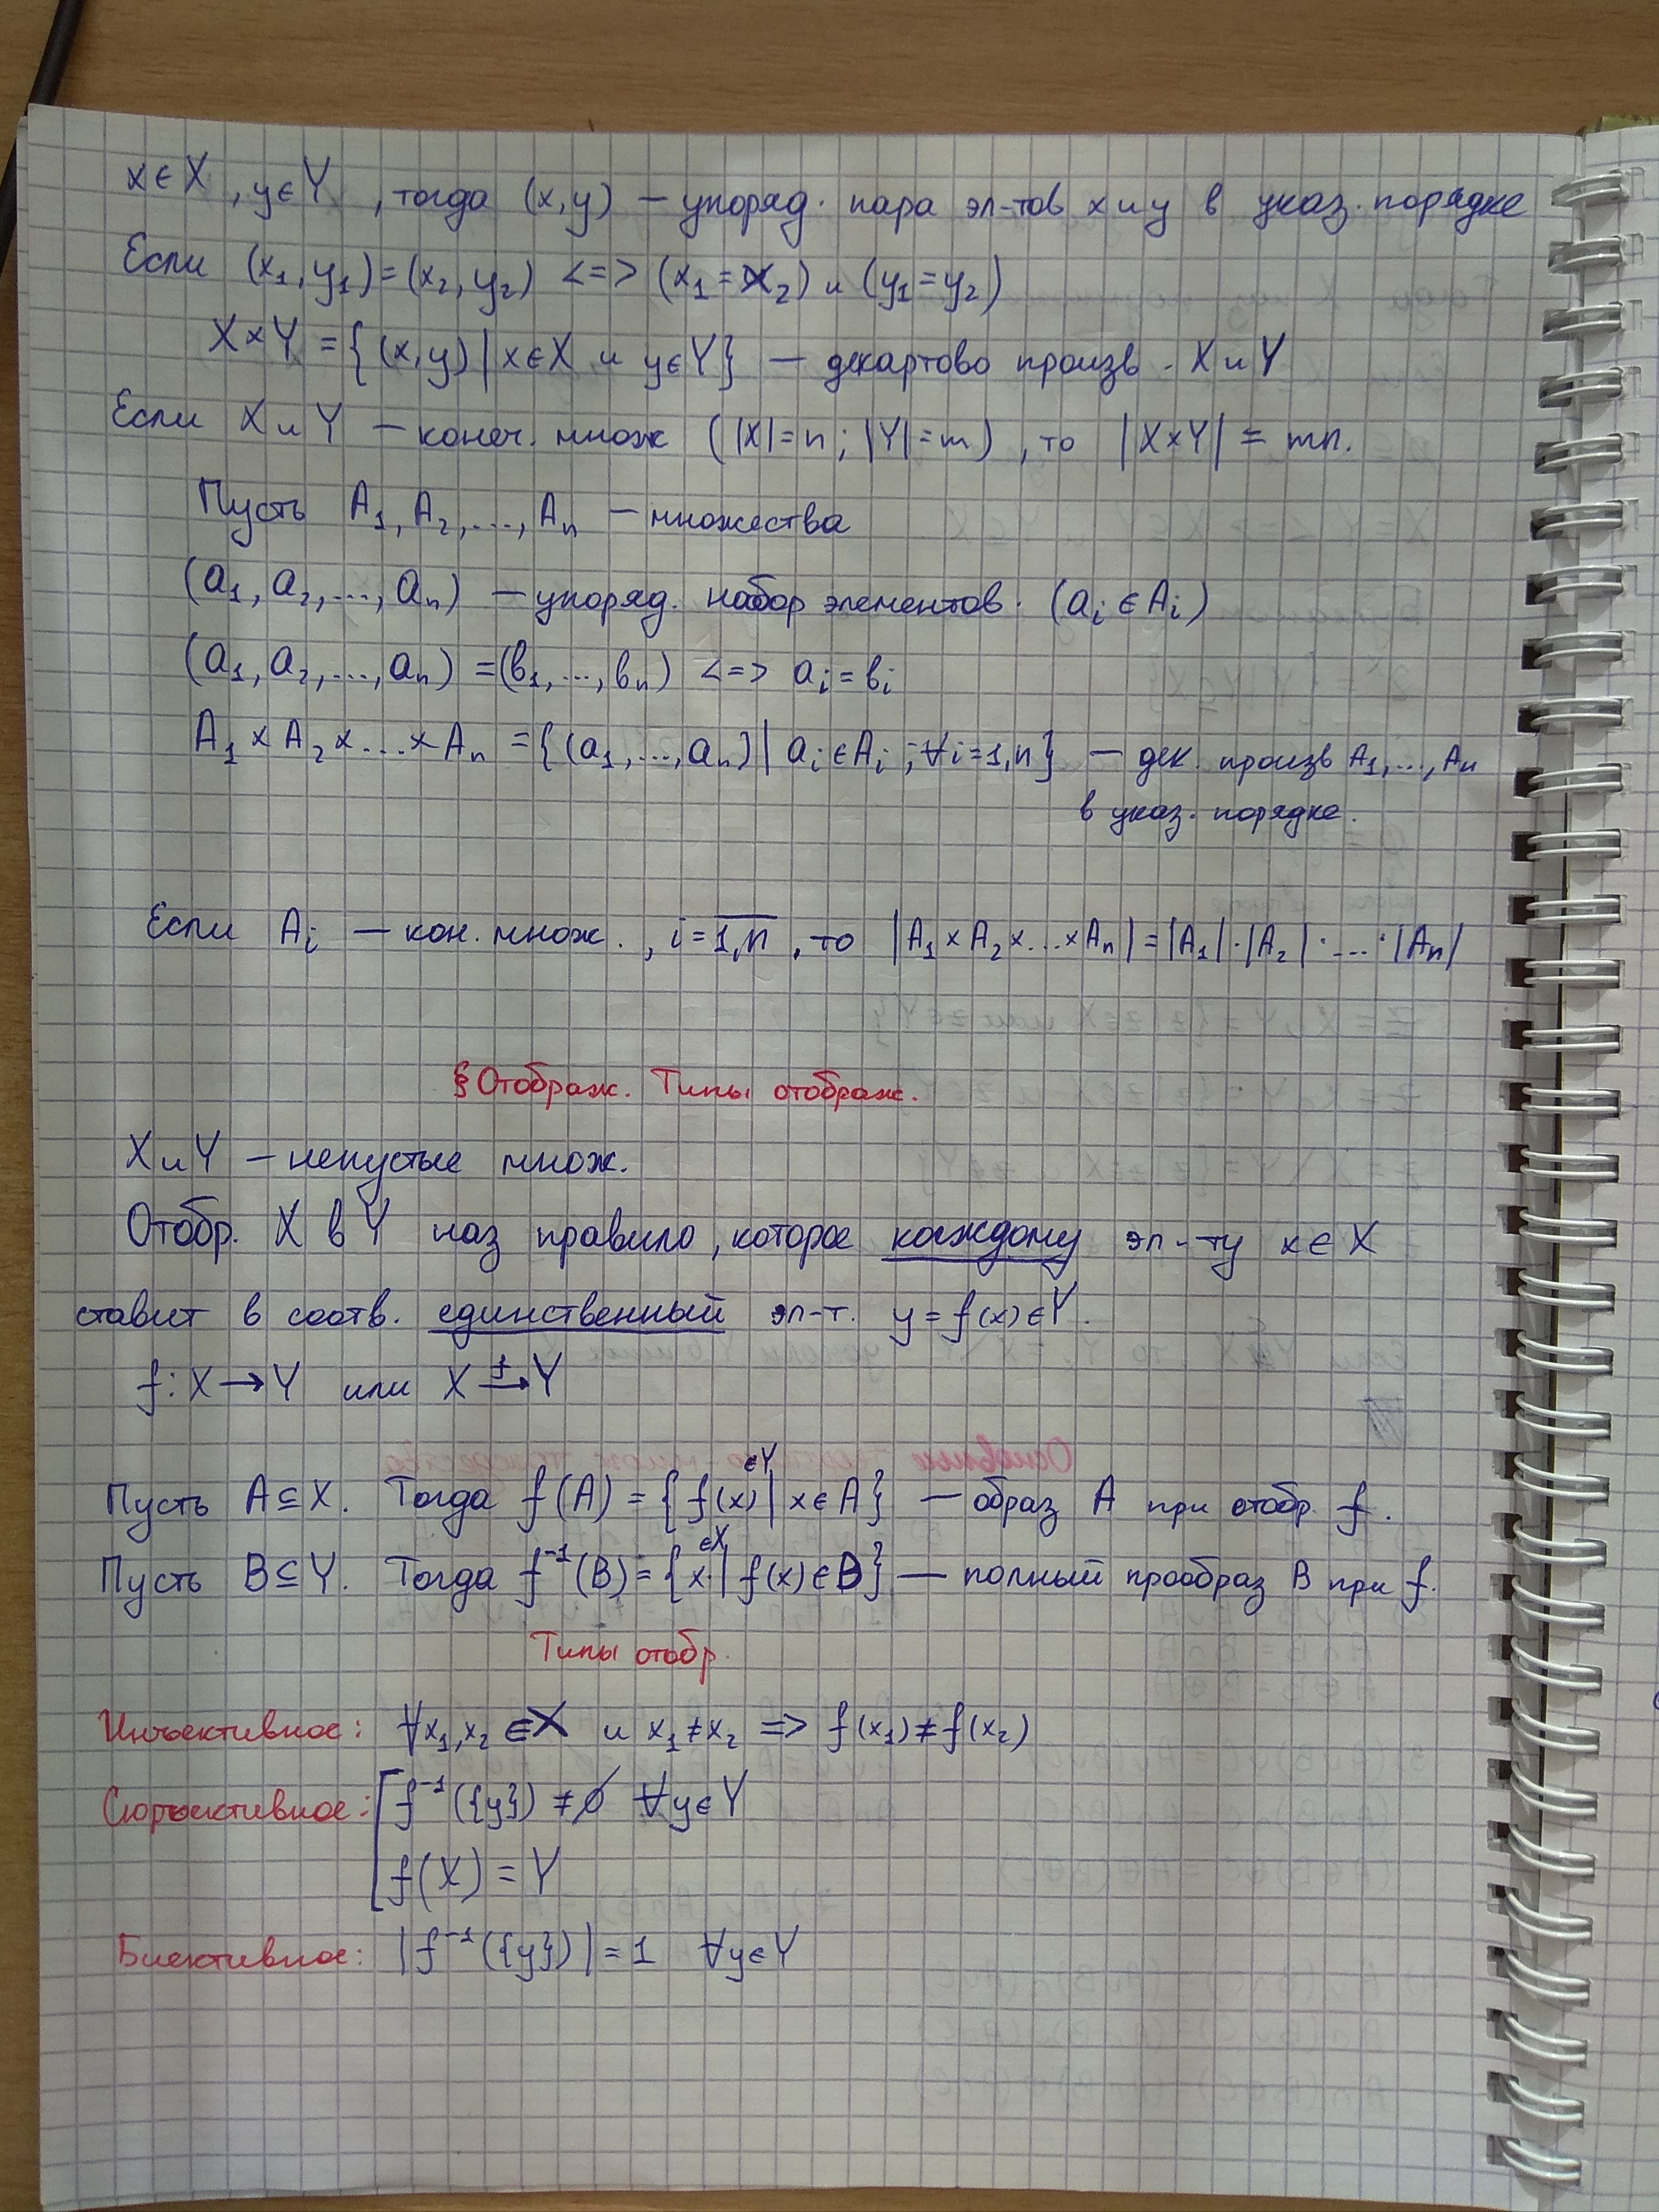 x∈X, y∈Y, тогда (x,y) — упоряд. пара эл-тов x и y в указ. порядке
Если (x₁,y₁)=(x₂,y₂) <=> (x₁=x₂) и (y₁=y₂)
X×Y = {(x,y) | x∈X и y∈Y} — декартово произв. X и Y
Если X и Y — конеч. множ (|X|=n; |Y|=m), то |X×Y| = mn.
Пусть A₁, A₂, ..., Aₙ — множества
(a₁, a₂, ..., aₙ) — упоряд. набор элементов. (aᵢ∈Aᵢ)
(a₁, a₂, ..., aₙ) = (в₁, ..., вₙ) <=> aᵢ = вᵢ
A₁×A₂×...×Aₙ = {(a₁, ..., aₙ) | aᵢ∈Aᵢ; ∀i=1,n} — дек. произв A₁, ..., Aₙ
в указ. порядке.
Если Aᵢ — кон. множ., i=1,n̅, то |A₁×A₂×...×Aₙ| = |A₁|·|A₂|· ... ·|Aₙ|
§ Отображ. Типы отображ.
X и Y — непустые множ.
Отобр. X в Y наз правило, которое каждому эл-ту x∈X
ставит в соотв. единственный эл-т. y = f(x)∈Y.
f: X→Y или X →ᶠ Y
Пусть A⊆X. Тогда f(A) = {f(x)^∈Y | x∈A} — образ A при отобр. f.
Пусть B⊆Y. Тогда f⁻¹(B) = {x^∈X | f(x)∈B} — полный прообраз B при f.
Типы отобр.
Инъективное: ∀x₁,x₂ ∈X и x₁≠x₂ => f(x₁)≠f(x₂)
Сюръективное: [f⁻¹({y}) ≠ ∅ ∀y∈Y
f(X) = Y
Биективное: |f⁻¹({y})| = 1 ∀y∈Y